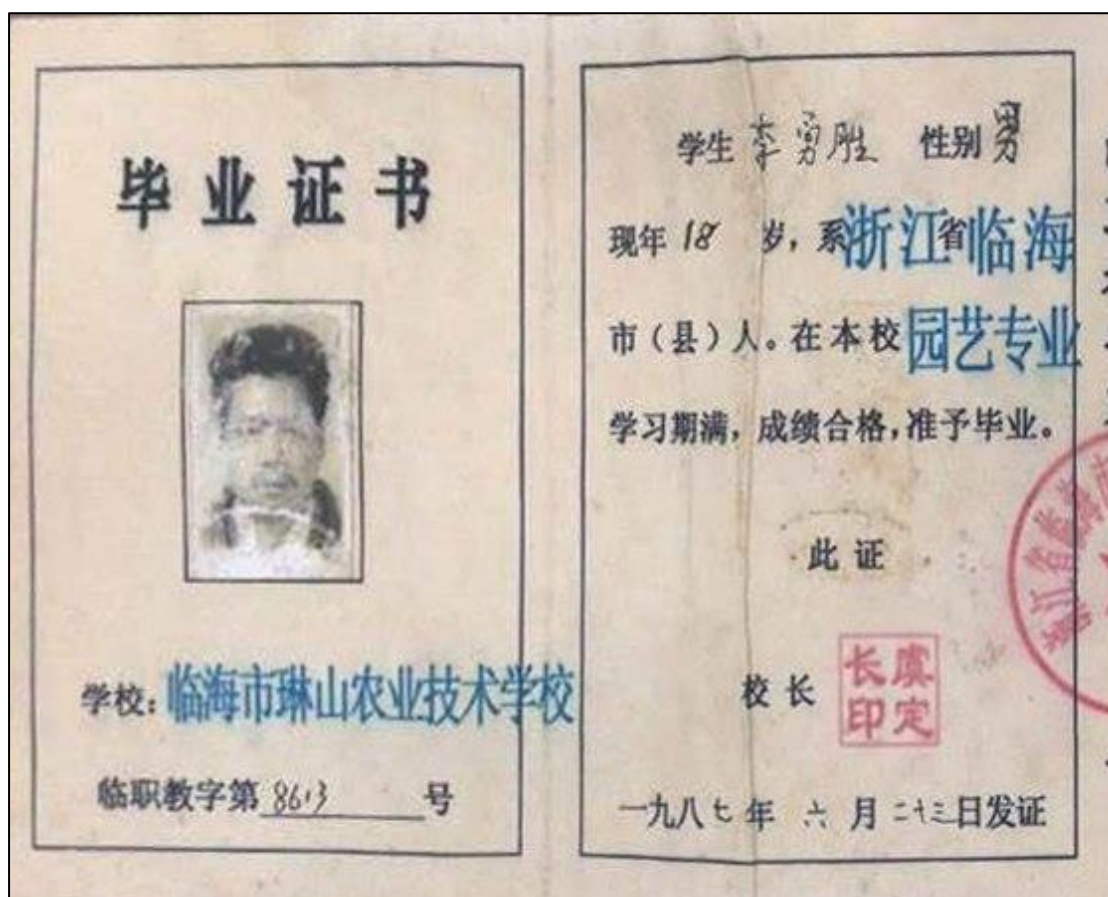 毕业证书
学校：临海市琳山农业技术学校
临职教字第 8613 号
学生 李勇胜 性别 男
现年 18 岁，系浙江省临海
市（县）人。在本校园艺专业
学习期满，成绩合格，准予毕业。
此证
校长 虞定长印
一九八七年 六 月 二十三日发证
浙江省临海市